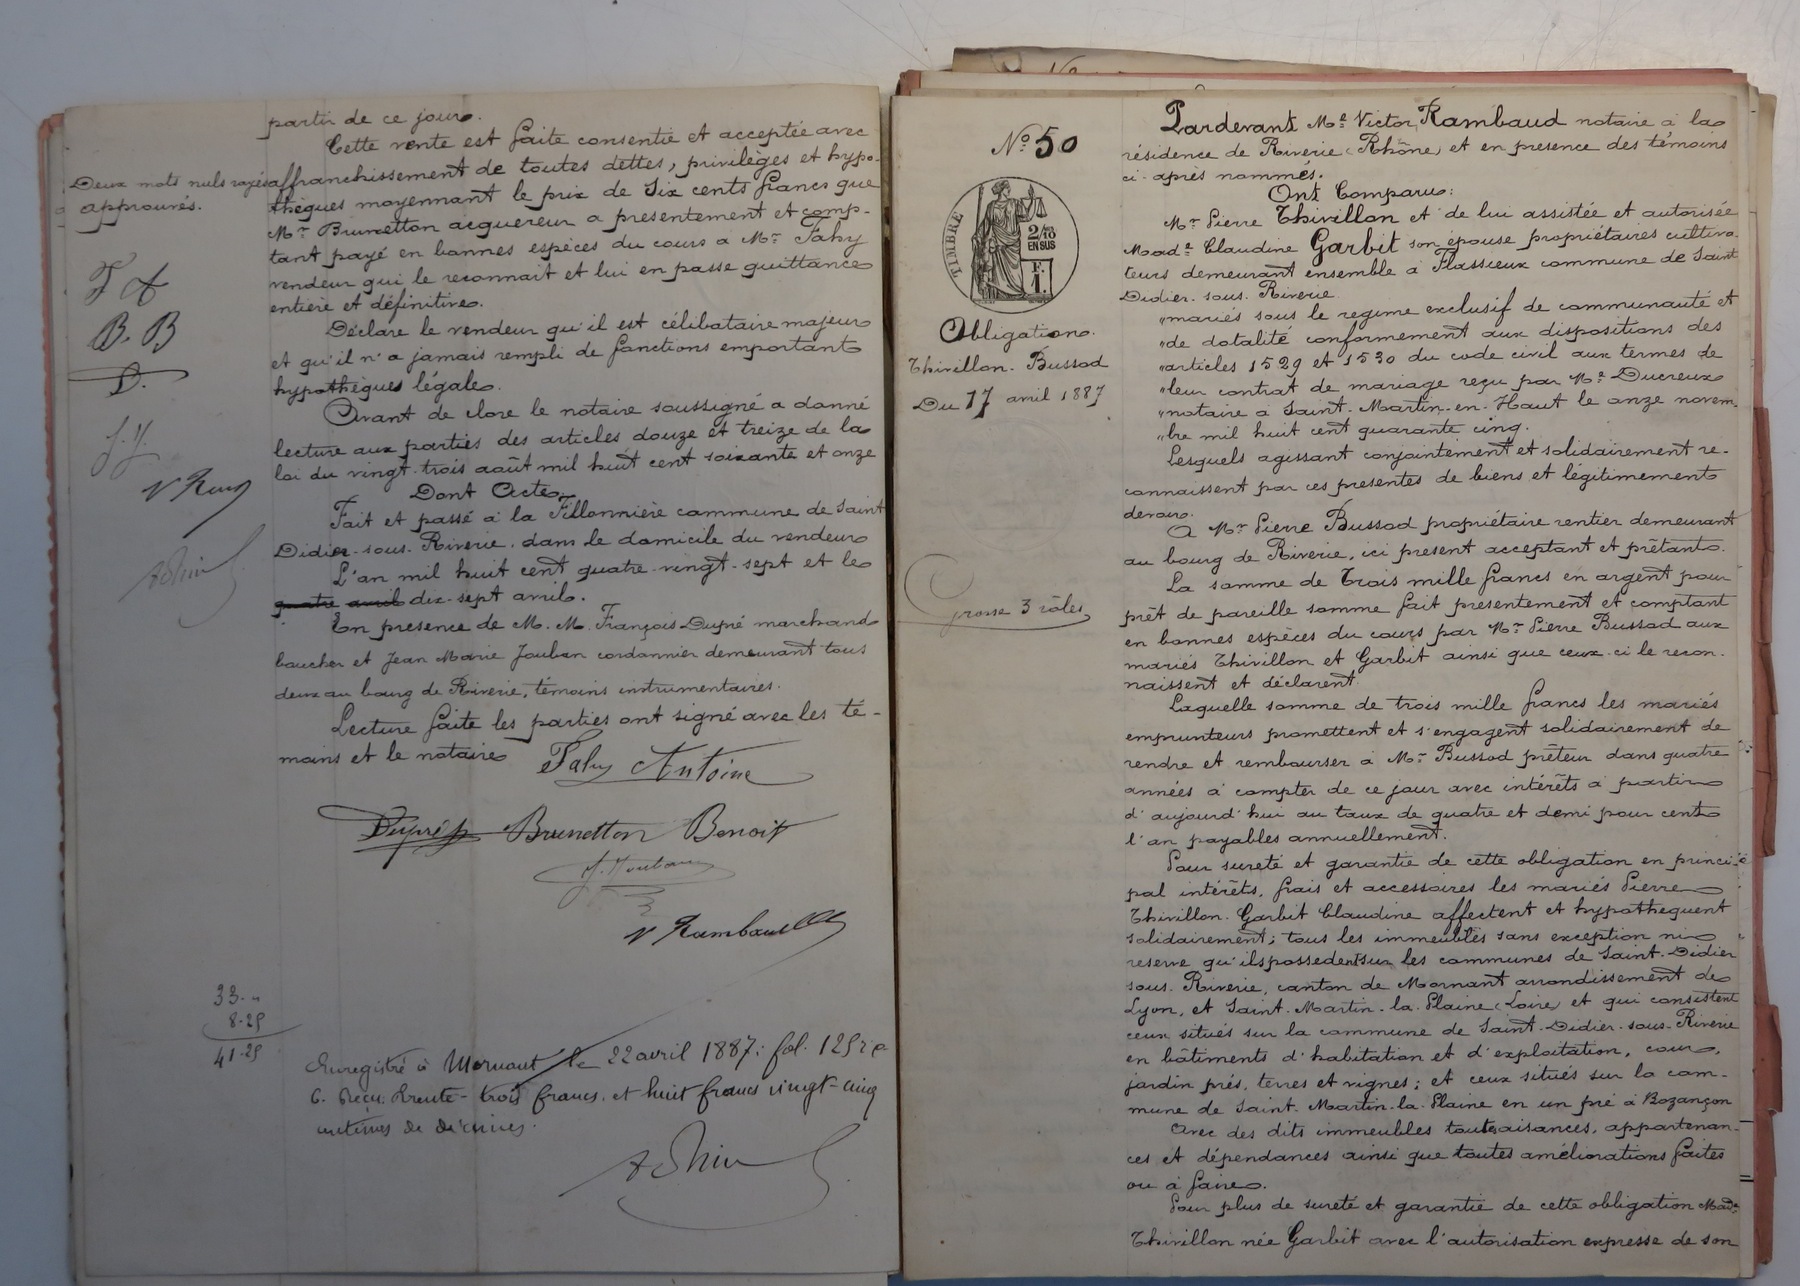 partir de ce jour.
Cette vente est faite consentie et acceptée avec
affranchissement de toutes dettes, privilèges et hypo-
thèques moyennant le prix de Six cents francs que
Mr Brunetton acquereur a presentement et comp-
tant payé en bonnes espèces du cours à Mr Fahy
vendeur qui le reconnait et lui en passe quittance
entière et définitive.
Déclare le vendeur qu'il est célibataire majeur
et qu'il n'a jamais rempli de fonctions emportant
hypothèques légale.
Avant de clore le notaire soussigné a donné
lecture aux parties des articles douze et treize de la
loi du vingt-trois août mil huit cent soixante et onze
Dont Acte.
Fait et passé à la Fillonnière commune de Saint
Didier-sous-Riverie. dans le domicile du vendeur
L'an mil huit cent quatre-vingt-sept et le
quatre avril dix-sept avril.
En presence de M. M. François Dupré marchand
boucher et Jean Marie Jouban cordonnier demeurant tous
deux au bourg de Riverie, témoins instrumentaires.
Lecture faite les parties ont signé avec les té-
moins et le notaire
Fahy Antoine
Dupré f Brunetton Benoit
J. Jouban
V Rambaud
Enregistré à Mornant le 22 avril 1887: fol. 125 r.
6. Reçu: trente-trois francs. et huit francs vingt-cinq
centimes de décimes.
Deux mots nuls rayés
approuvés.
F A
B. B
D.
J. J.
V Ram
33.
8.25
41.25
No 50
TIMBRE
2/10
EN SUS
F.
1.
Obligation.
Thivillon-Bussod
Du 17 avril 1887
Grosse 3 rôles
Pardevant Me Victor Rambaud notaire à la
résidence de Riverie (Rhône) et en presence des témoins
ci-après nommés.
Ont Comparu:
Mr Pierre Thivillon et de lui assistée et autorisée
Made Claudine Garbit son épouse propriétaires cultiva-
teurs demeurant ensemble à Flassieux commune de Saint
Didier-sous-Riverie.
"mariés sous le regime exclusif de communauté et
"de dotalité conformement aux dispositions des
"articles 1529 et 1530 du code civil aux termes de
"leur contrat de mariage reçu par Me Ducreux
"notaire à Saint-Martin-en-Haut le onze novem-
"bre mil huit cent quarante cinq.
Lesquels agissant conjointement et solidairement re-
connaissent par ces presentes de biens et légitimement
devoir.
A Mr Pierre Bussod propriétaire rentier demeurant
au bourg de Riverie, ici present acceptant et prêtant.
La somme de Trois mille francs en argent pour
prêt de pareille somme fait presentement et comptant
en bonnes espèces du cours par Mr Pierre Bussod aux
mariés Thivillon et Garbit ainsi que ceux-ci le recon-
naissent et déclarent.
Laquelle somme de trois mille francs les mariés
emprunteurs promettent et s'engagent solidairement de
rendre et rembourser à Mr Bussod prêteur dans quatre
années à compter de ce jour avec intérêts à partir
d'aujourd'hui au taux de quatre et demi pour cent
l'an payables annuellement.
Pour sureté et garantie de cette obligation en princi-
pal intérêts, frais et accessoires les mariés Pierre
Thivillon-Garbit Claudine affectent et hypothequent
solidairement; tous les immeubles sans exception ni
reserve qu'ils possedent sur les communes de Saint-Didier
sous-Riverie, canton de Mornant arrondissement de
Lyon, et Saint-Martin-la-Plaine (Loire) et qui consistent
ceux situés sur la commune de Saint-Didier-sous-Riverie
en bâtiments d'habitation et d'exploitation, cour,
jardin prés, terres et vignes; et ceux situés sur la com-
mune de Saint-Martin-la-Plaine en un pré à Bozançon
Avec des dits immeubles toutes aisances, appartenan-
ces et dépendances ainsi que toutes améliorations faites
ou à faire.
Pour plus de sureté et garantie de cette obligation Made
Thivillon née Garbit avec l'autorisation expresse de son